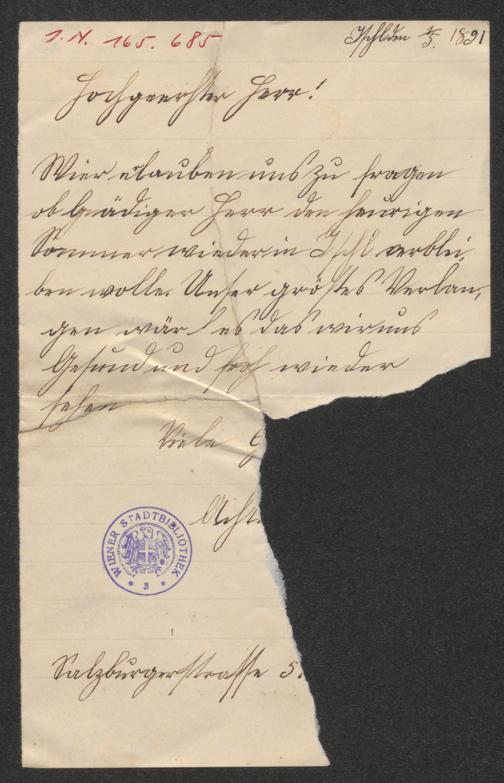 I.N. 165.685
Ischl den 4/3. 1891
Hochgeerhter Herr!
Wier erlauben uns zu fragen
ob Gnädiger Herr den heurigen
Sommer wieder in Ischl verblei,
ben wolle. Unser gröstes Verlan,
gen wär es das wir uns
Gesund und froh wieder
sehen
Viele G
Acht
WIENER STADTBIBLIOTHEK
3
Salzburgerstrasse 5.